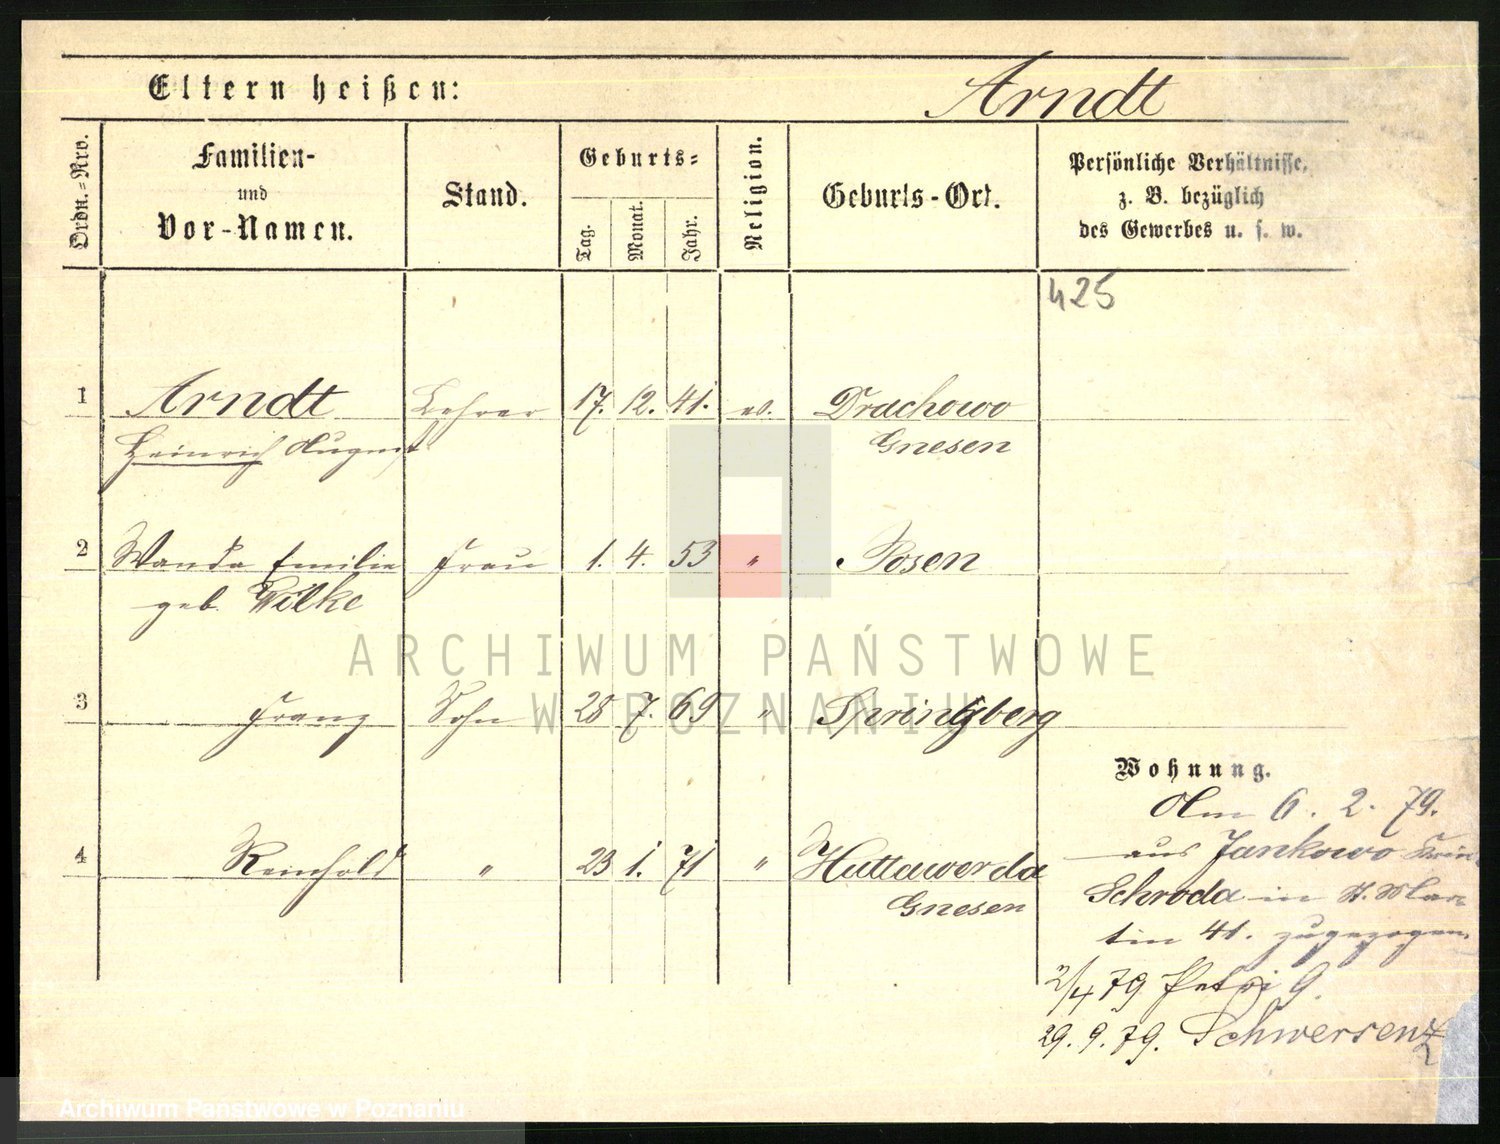 Eltern heißen: Arndt
Ordn.-Nro.
Familien-
und
Vor-Namen.
Stand.
Geburts-
Tag.
Monat.
Jahr.
Religion.
Geburts-Ort.
Persönliche Verhältnisse,
z. B. bezüglich
des Gewerbes u. s. w.
425
1 Arndt Lehrer 17. 12. 41. ev. Drachowo
Heinrich August Gnesen
2 Wanda Emilie Frau 1. 4. 53 " Posen
geb. Wilke
ARCHIWUM PAŃSTWOWE
W POZNANIU
3 Franz Sohn 28 7. 69 " Springberg
4 Reinhold " 23 1. 71 " Huttawerda
Gnesen
Wohnung.
Am 6. 2. 79.
aus Jankowo Kreis
Schroda in St. Mar-
tin 41. zugezogen.
2/4 79 Petri 9.
29. 9. 79. Schwersenz
Archiwum Państwowe w Poznaniu